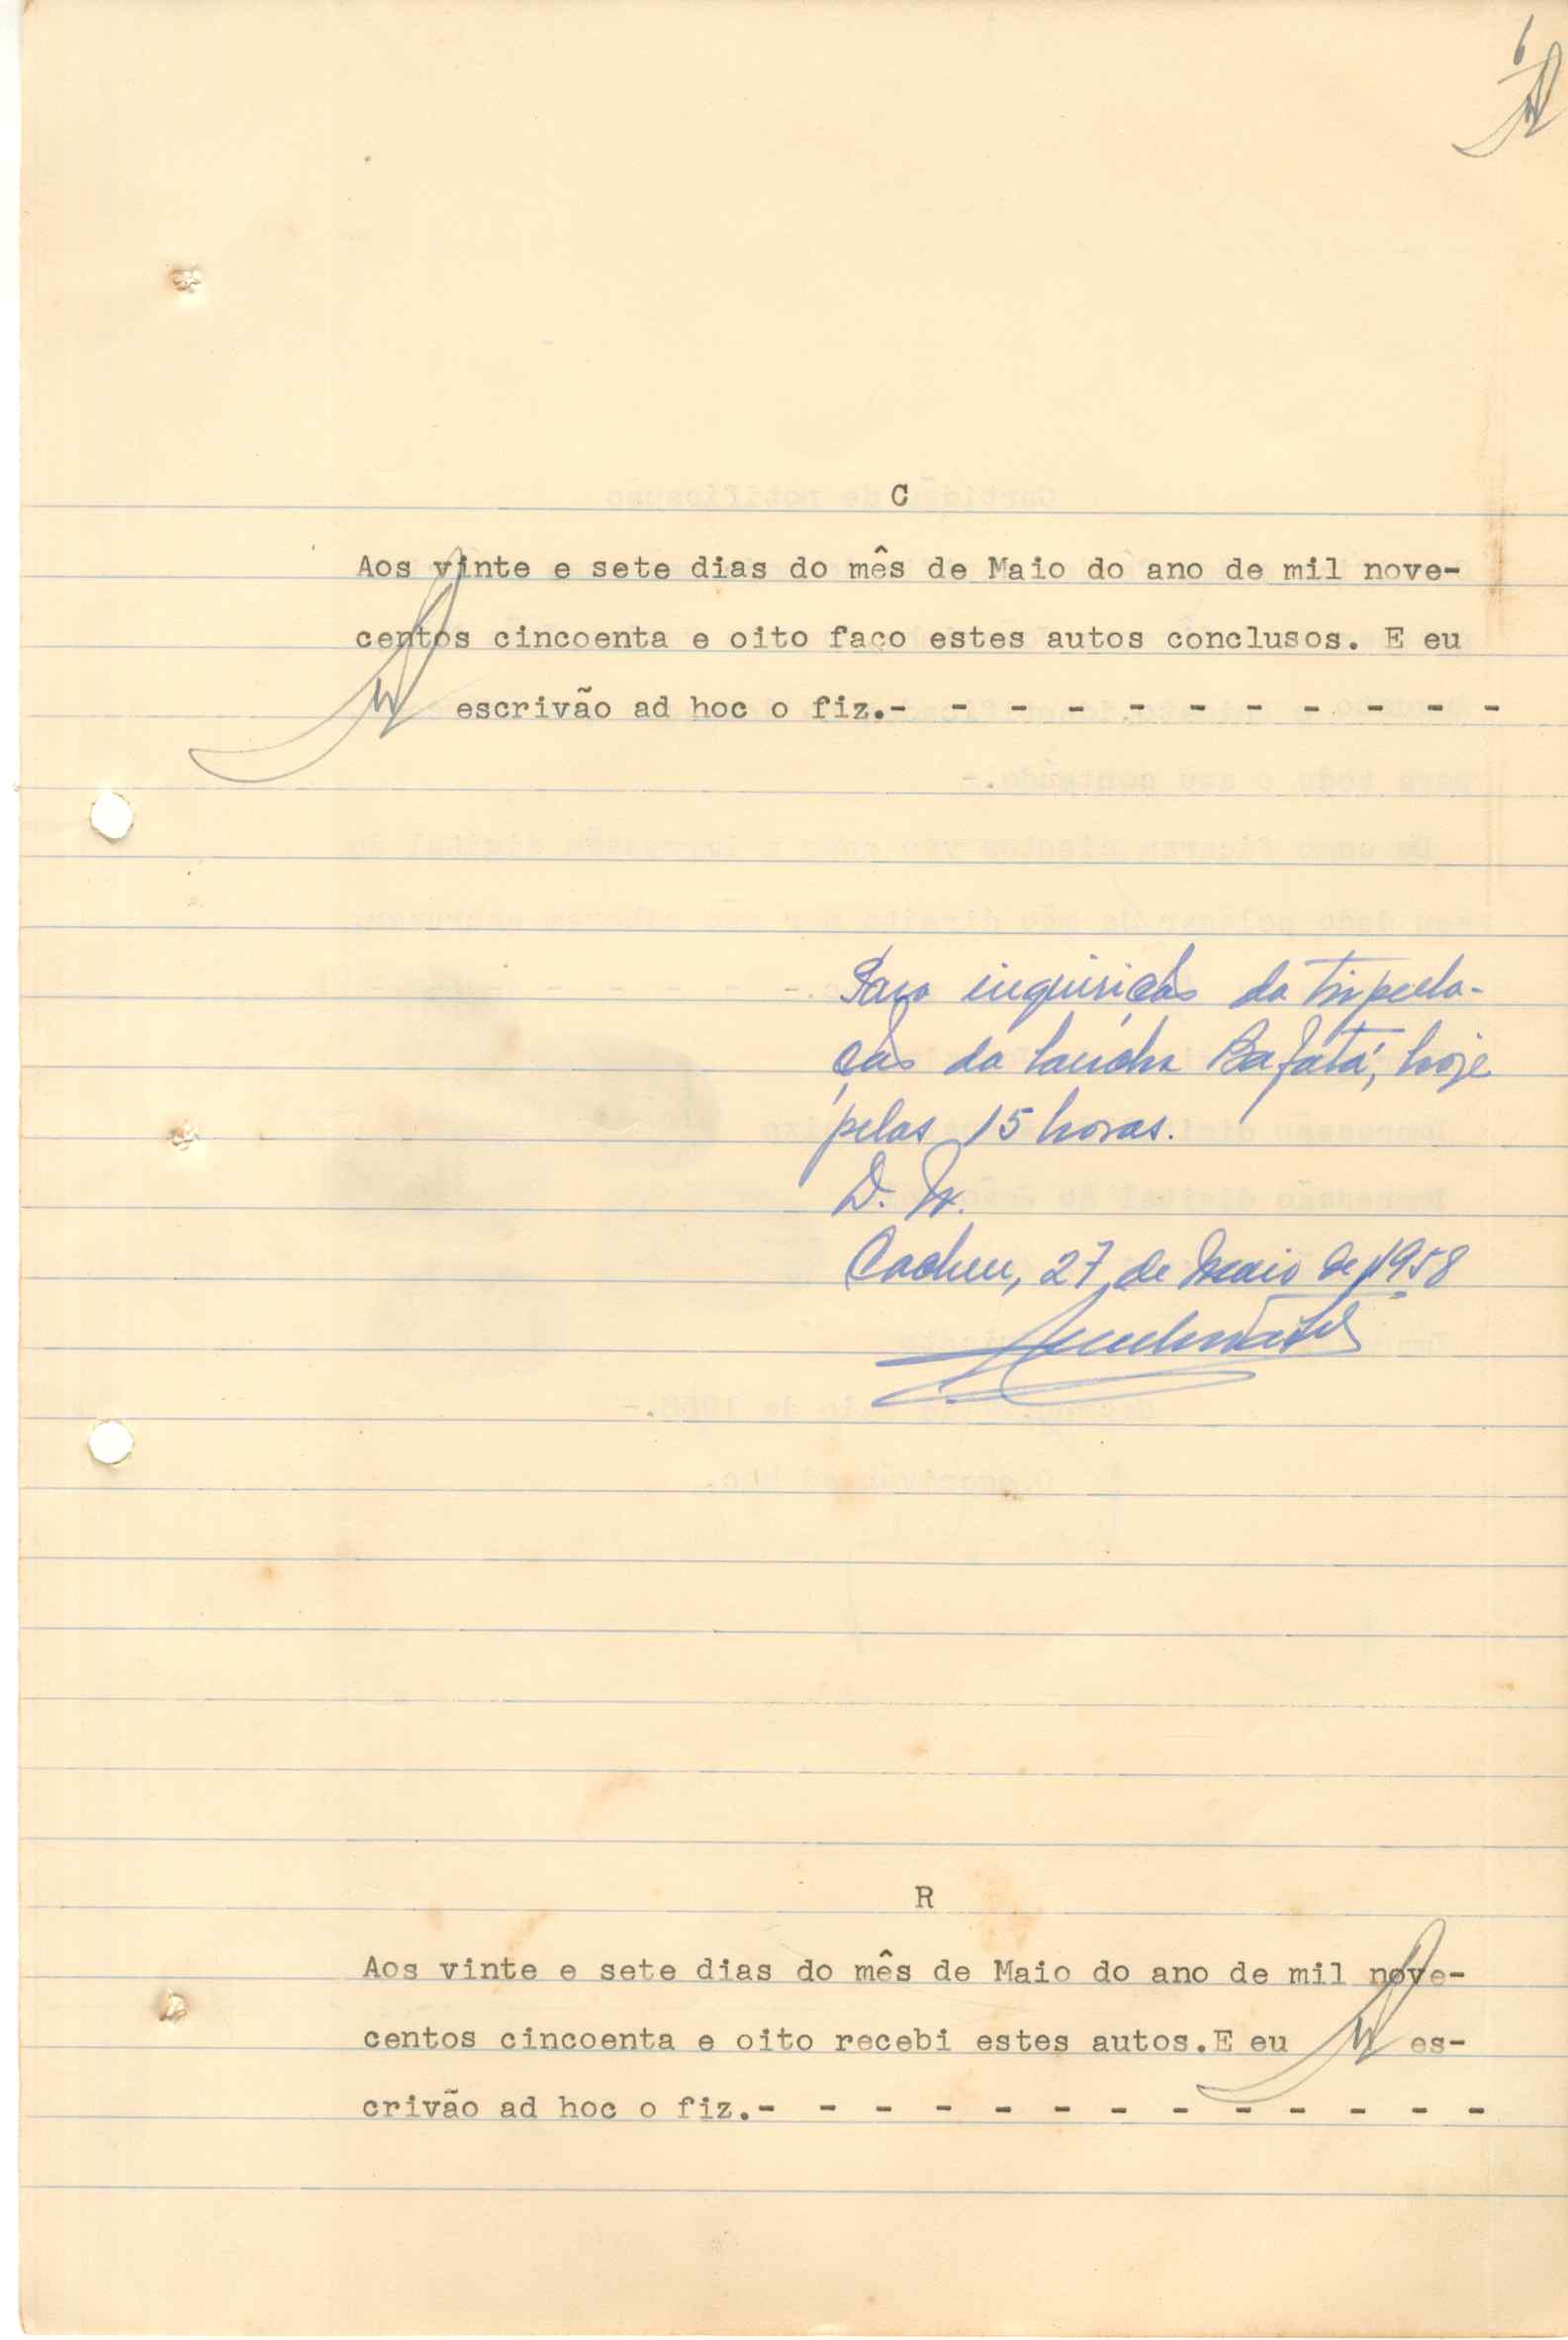 6
C
Aos vinte e sete dias do mês de Maio do ano de mil nove-
centos cincoenta e oito faço estes autos conclusos. E eu
escrivão ad hoc o fiz.- - - - - - - - - - - -
Para inquirição da tripula-
ção da lancha Bafatá, hoje
pelas 15 horas.
D. N.
Cacheu, 27 de Maio de 1958
R
Aos vinte e sete dias do mês de Maio do ano de mil nove-
centos cincoenta e oito recebi estes autos.E eu es-
crivão ad hoc o fiz.- - - - - - - - - - - - - -